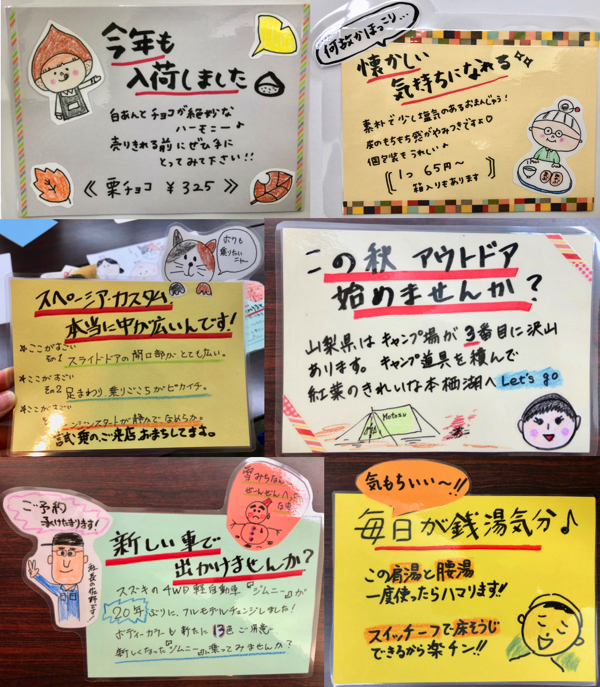 今年も
入荷しました
白あんとチョコが絶妙な
ハーモニー♪
売りきれる前にぜひ手に
とってみて下さい!!
《栗チョコ ¥325》
何故かほっこり…
懐かしい
気持ちになれる
素朴で少し塩気のあるおまんじゅう!
皮のもちもち感がやみつきですよ♡
個包装もうれしい♪
1つ 65円〜
箱入りもあります
ボクも
乗りたい
ニャー
スペーシア・カスタム
本当に中が広いんです!
ここがすごい
その1 スライドドアの開口部がとても広い。
ここがすごい
その2 足まわり、乗りごこちがピカイチ。
ここがすごい
エンジンスタートが静かでなめらか。
試乗のご来店おまちしてます。
この秋 アウトドア
始めませんか?
山梨県は キャンプ場が 3番目に沢山
あります。キャンプ道具を積んで
紅葉のきれいな本栖湖へ Let's go
Motosu
ご予約
承けたまります!
社長の佐野です!
雪みちなんて
新しい車で
出かけませんか?
スズキの4WD軽自動車『ジムニー』が
20年ぶりに、フルモデルチェンジしました!
ボディーカラーも新たに 13色ご用意
新しくなった『ジムニー』に乗ってみませんか?
気もちいい〜!!
毎日が銭湯気分♪
この肩湯と腰湯
一度使ったらハマります!!
スイッチ一つで床そうじ
できるから楽チン!!